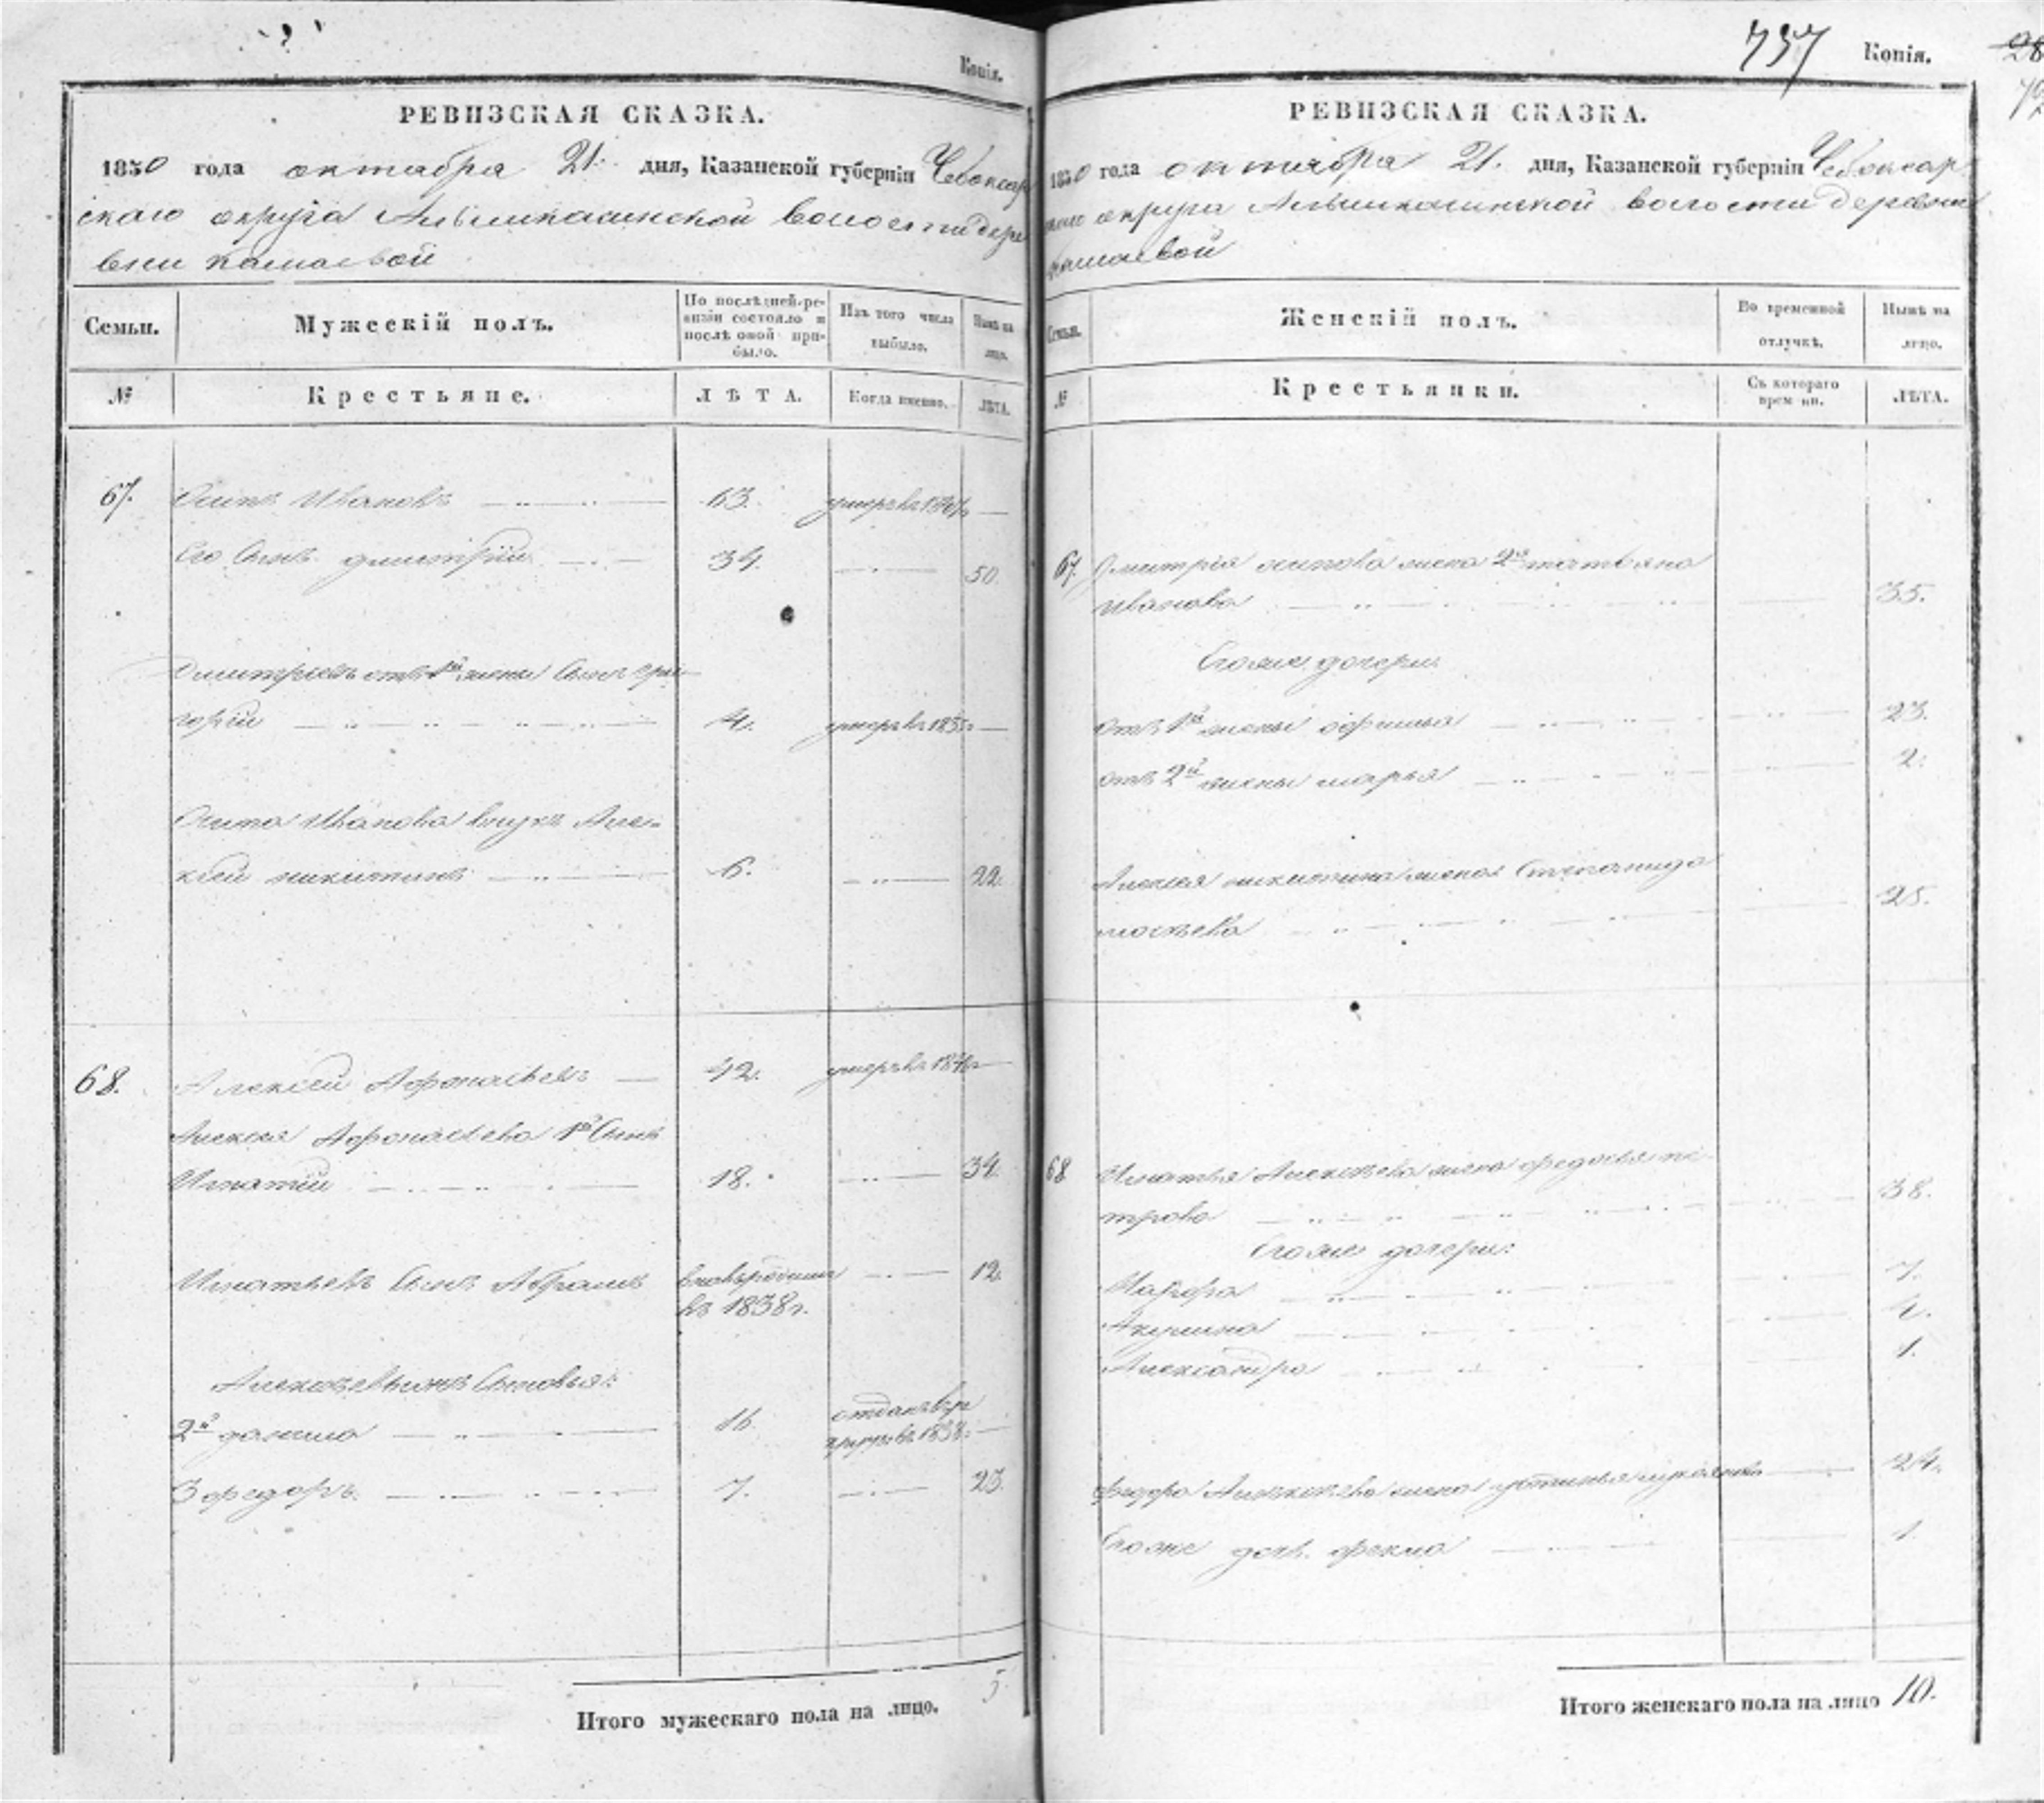 Копія.
РЕВИЗСКАЯ СКАЗКА.
1850 года октября 21. дня, Казанской губерніи Чебоксар
скаго округа Алымкасинской волости дере
вни Камаевой
Семьи.
Мужескій полъ.
По послѣдней ре-
визіи состояло и
послѣ оной при-
было.
Изъ того числа
выбыло.
Нынѣ на
лицо.
№
Крестьяне.
ЛѢТА.
Когда именно.
ЛѢТА.
67. Осипъ Ивановъ 63. умеръ въ
Его Сынъ Дмитрій 34. 50.
Дмитріевъ отъ 1й жены Сынъ Гри
горій 4. умеръ въ
Осипа Иванова внукъ Але-
ксей Никитинъ 6. 22.
68. Алексей Афонасьевъ 42. умеръ въ
Алексея Афонасьева 1й Сынъ
Игнатій 18. 34.
Игнатьевъ Сынъ Абрамъ вновь рожденъ 12.
въ 1838г.
Алексея Сыновья:
2й Данило 16. отданъ въ ре
круты въ
3 Федоръ 7. 23.
Итого мужескаго пола на лицо. 5.
737 Копія.
РЕВИЗСКАЯ СКАЗКА.
1850 года октября 21. дня, Казанской губерніи Чебоксар
скаго округа Алымкасинской волости деревни
Камаевой
Семьи.
Женскій полъ.
Во временной
отлучкѣ.
Нынѣ на
лицо.
№
Крестьянки.
Съ котораго
времени.
ЛѢТА.
67. Дмитрія Осипова жена 2я Татьяна
Иванова 35.
Егоже дочери:
Отъ 1й жены Офимья 23.
Отъ 2й жены Марья 2.
Алексея Никитина жена Степанида
Мосеева 25.
68 Игнатья Алексѣева жена Федосья Пе
трова 38.
Егоже дочери:
Марфа 7.
Акулина 4.
Александра 1.
Федора Алексѣева жена Устинья 24.
Егоже дочь Фекла 1.
Итого женскаго пола на лицо 10.